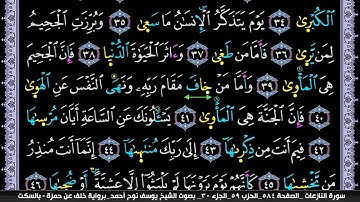 ٱلْكُبْرَىٰ ٣٤ يَوْمَ يَتَذَكَّرُ ٱلْإِنسَٰنُ مَا سَعَىٰ ٣٥ وَبُرِّزَتِ ٱلْجَحِيمُ
لِمَن يَرَىٰ ٣٦ فَأَمَّا مَن طَغَىٰ ٣٧ وَءَاثَرَ ٱلْحَيَوٰةَ ٱلدُّنْيَا ٣٨ فَإِنَّ ٱلْجَحِيمَ
هِىَ ٱلْمَأْوَىٰ ٣٩ وَأَمَّا مَنْ خَافَ مَقَامَ رَبِّهِۦ وَنَهَى ٱلنَّفْسَ عَنِ ٱلْهَوَىٰ
٤٠ فَإِنَّ ٱلْجَنَّةَ هِىَ ٱلْمَأْوَىٰ ٤١ يَسْـَٔلُونَكَ عَنِ ٱلسَّاعَةِ أَيَّانَ مُرْسَىٰهَا
٤٢ فِيمَ أَنتَ مِن ذِكْرَىٰهَا ٤٣ إِلَىٰ رَبِّكَ مُنتَهَىٰهَا ٤٤ إِنَّمَا أَنتَ مُنذِرُ
مَن يَخْشَىٰهَا ٤٥ كَأَنَّهُمْ يَوْمَ يَرَوْنَهَا لَمْ يَلْبَثُوٓا۟ إِلَّا عَشِيَّةً أَوْ ضُحَىٰهَا ٤٦
سورة النازعات _الصفحة ٥٨٤_الحزب ٥٩_الجزء ٣٠_ بصوت الشيخ يوسف نوح أحمد_برواية خلف عن حمزة - بالسكت